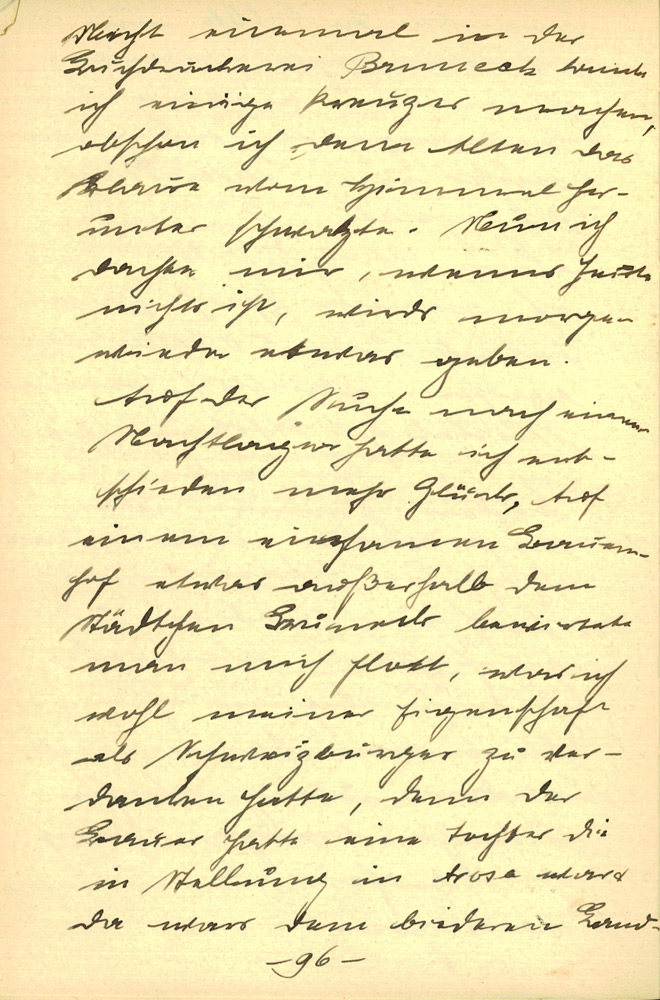 Nicht einmal in der
Buchdruckerei Bruneck konnte
ich einige Kreuzer machen,
obschon ich dem Alten das
Blaue vom Himmel her-
unter schwatzte. Nun ich
dachte mir, wenns heute
nichts ist, wirds morgen
wieder etwas geben.
Auf der Suche nach einem
Nachtlager hatte ich ent-
schieden mehr Glück, auf
einem einsamen Bauern-
hof etwas außerhalb dem
Städtchen Bruneck bewirtete
man mich flott, was ich
wohl meiner Eigenschaft
als Schweizbürger zu ver-
danken hatte, denn der
Bauer hatte eine Tochter die
in Stellung in Arosa war &
da war dem biederen Land-
- 96 -